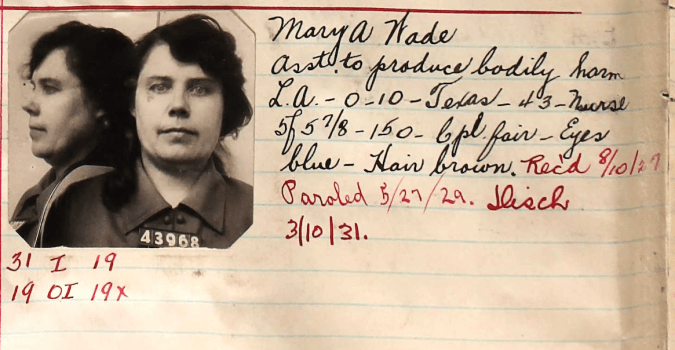 Mary A Wade
Asst. to produce bodily harm
L.A. - 0-10 - Texas - 43 - Nurse
5f 5 7/8 - 150 - Cpl. fair - Eyes
blue - Hair brown. Rec'd 8/10/27
Paroled 5/27/29. Disch
3/10/31.
43968
31 I 19
19 OI 19x